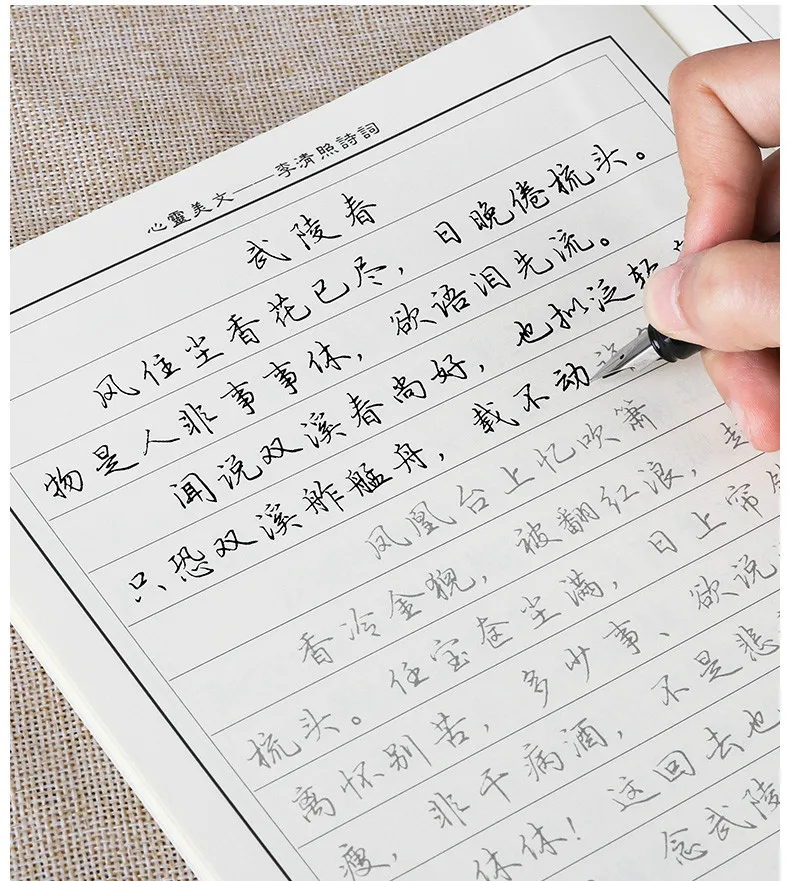 心靈美文——李清照詩詞
武陵春
风住尘香花已尽，日晚倦梳头。
物是人非事事休，欲语泪先流。
闻说双溪春尚好，也拟泛轻
只恐双溪舴艋舟，载不动许
凤凰台上忆吹箫
香冷金猊，被翻红浪，起
梳头。任宝奁尘满，日上帘
离怀别苦，多少事、欲说
瘦，非干病酒，不是悲
休休！这回去也
念武陵